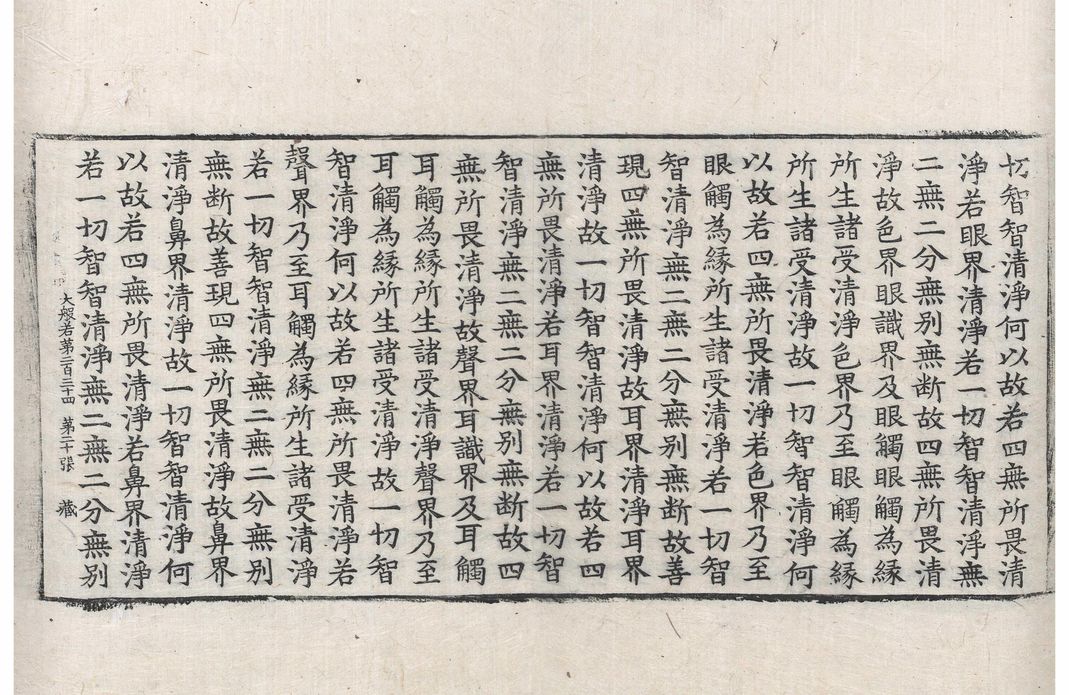 切智智清淨何以故若四無所畏清
淨若眼界清淨若一切智智清淨無
二無二分無別無断故四無所畏清
淨故色界眼識界及眼觸眼觸為縁
所生諸受清淨色界乃至眼觸為縁
所生諸受清淨故一切智智清淨何
以故若四無所畏清淨若色界乃至
眼觸為縁所生諸受清淨若一切智
智清淨無二無二分無別無断故善
現四無所畏清淨故耳界清淨耳界
清淨故一切智智清淨何以故若四
無所畏清淨若耳界清淨若一切智
智清淨無二無二分無別無断故四
無所畏清淨故聲界耳識界及耳觸
耳觸為縁所生諸受清淨聲界乃至
耳觸為縁所生諸受清淨故一切智
智清淨何以故若四無所畏清淨若
聲界乃至耳觸為縁所生諸受清淨
若一切智智清淨無二無二分無別
無断故善現四無所畏清淨故鼻界
清淨鼻界清淨故一切智智清淨何
以故若四無所畏清淨若鼻界清淨
若一切智智清淨無二無二分無別
大般若第二百三十四 第二十張 藏